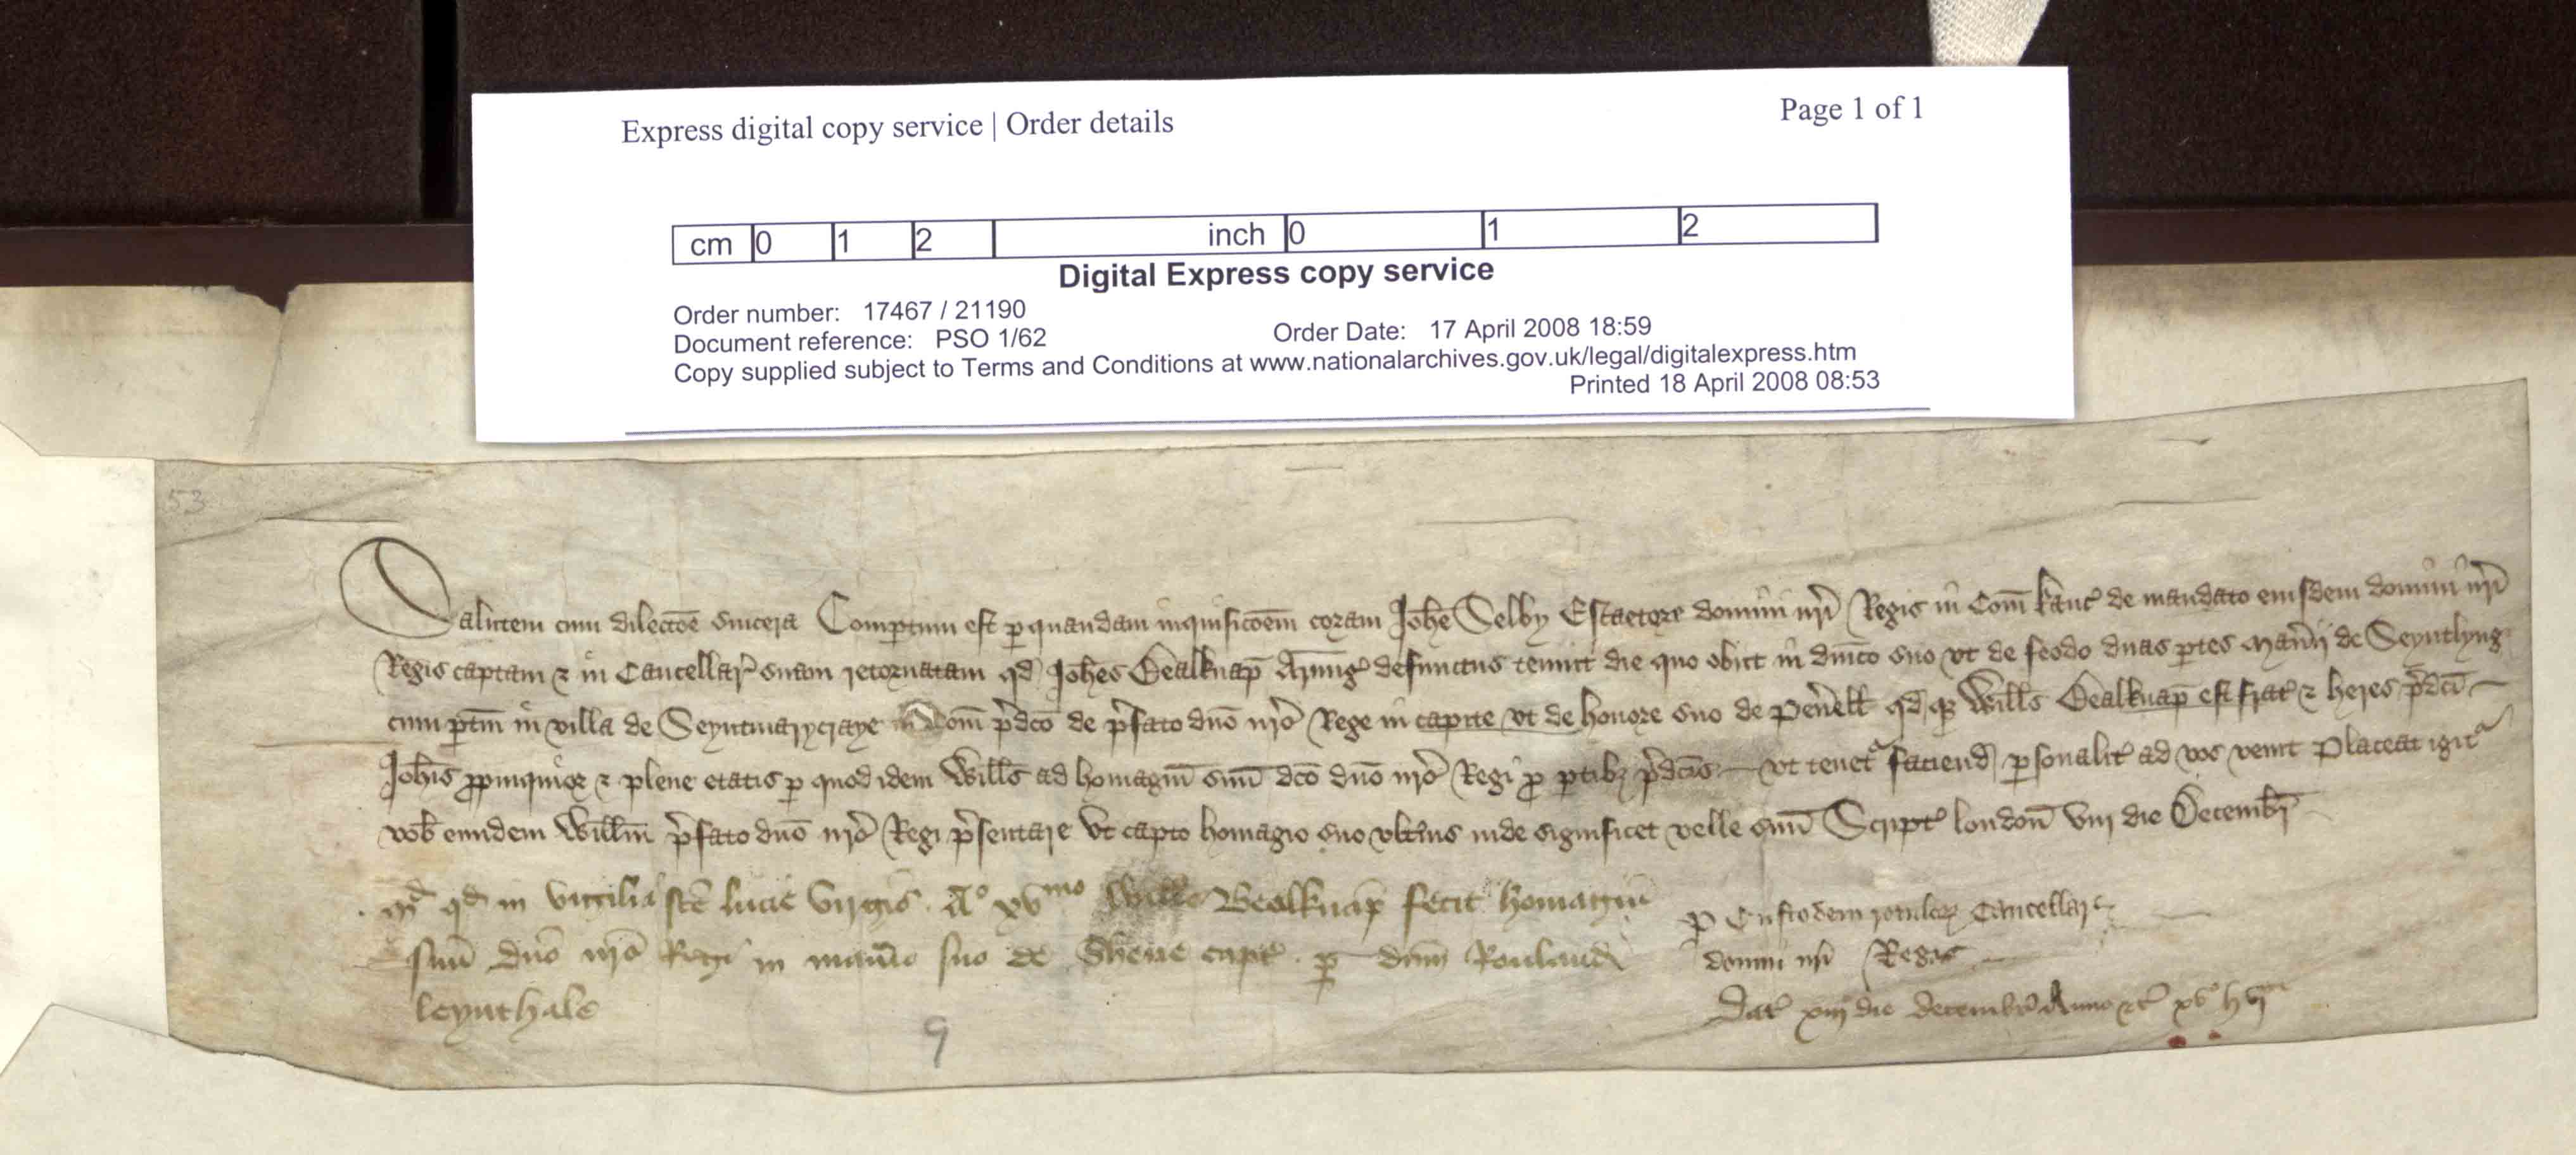 Express digital copy service | Order details Page 1 of 1
cm 0 1 2 inch 0 1 2
Digital Express copy service
Order number: 17467 / 21190
Document reference: PSO 1/62 Order Date: 17 April 2008 18:59
Copy supplied subject to Terms and Conditions at www.nationalarchives.gov.uk/legal/digitalexpress.htm
Printed 18 April 2008 08:53
53
Salutem cum dilectōe sincera Compertum est p quandam inquisicōem coram Joħe Selby Escaetore domini nr̄i Regis in Com̄ Kanc' de mandato eiusdem domini nr̄i
Regis captam & in Cancellar' suam retornatam qd Joħes Bealknap Armig' defunctus tenuit die quo obiit in dn̄ico suo vt de feodo duas p̱tes Man̄ii de Seyntlyng
cum p̱tin̄ in villa de Seyntmarycraye in Com̄ p̄dc̄o de p̄fato dn̄o nr̄o Rege in capite vt de honore suo de Peūell qd q̱ Wills Bealknap est frat' & heres p̄dc̄i
Joħis p̱pinquior & plene etatis p quod idem Wills ad homagiū suū dc̄o dn̄o nr̄o Regi p̱ p̱tibȝ p̄dc̄is vt tenet' faciend p̱sonalit' ad vos venit Placeat igit'
vob̄ eundem Willm̄ p̄fato dn̄o nr̄o Regi p̄sentare Vt capto homagio suo vlt̄ius inde significet velle suū Script' london̄ viij die Decembr̄
md qd in vigilia sc̄e lucie virgīs Ao xvmo Wills Bealknap fecit homagiū
suū dn̄o nr̄o Regi in man̄io suo de Shene capt' p dn̄m Rouland
leynthale
p Custodem rotulorꝝ Cancellar'
domini nr̄i Regis
Dat' xiij die decembr' Anno &c' xvo h vjti
9